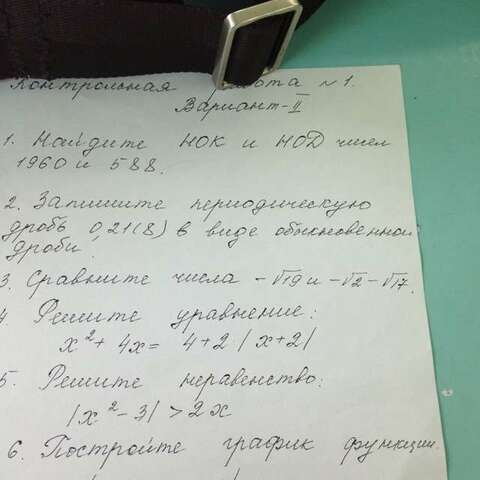 Контрольная работа №1.
Вариант-II
1. Найдите НОК и НОД чисел
1960 и 588.
2. Запишите периодическую
дробь 0,21(8) в виде обыкновенной
дроби.
3. Сравните числа -√19 и -√2-√17.
4. Решите уравнение:
x²+4x=4+2|x+2|
5. Решите неравенство:
|x²-3|>2x
6. Постройте график функции